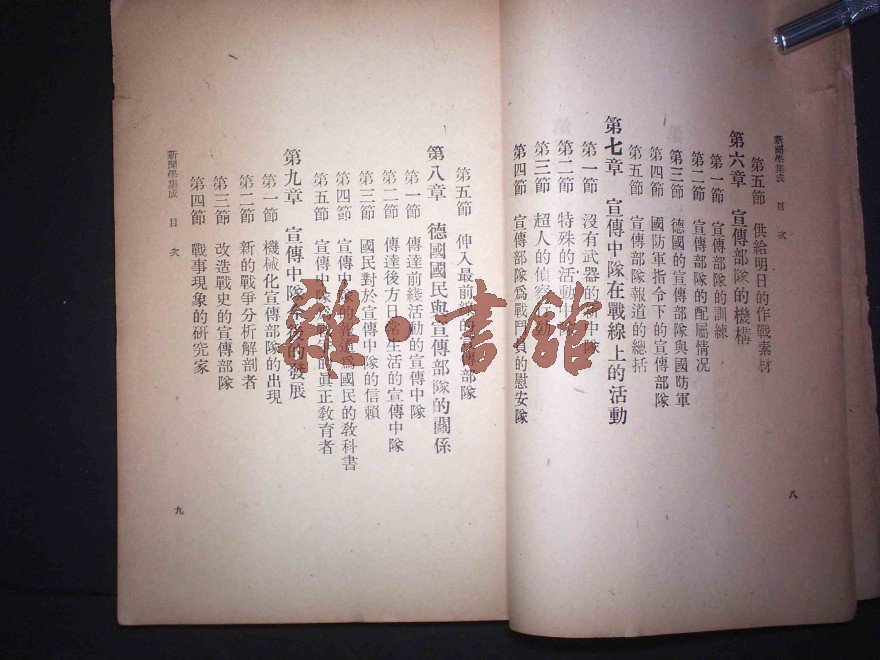 新聞學集成 目次
第五節 供給明日的作戰素材
第六章 宣傳部隊的機構
第一節 宣傳部隊的訓練
第二節 宣傳部隊的配屬情況
第三節 德國的宣傳部隊與國防軍
第四節 國防軍指令下的宣傳部隊
第五節 宣傳部隊報道的總括
第七章 宣傳中隊在戰線上的活動
第一節 沒有武器的 中隊
第二節 特殊的活動
第三節 超人的偵察
第四節 宣傳部隊爲戰鬥員的慰安隊
八
第五節 伸入最前線的宣傳部隊
第八章 德國國民與宣傳部隊的關係
第一節 傳達前綫活動的宣傳中隊
第二節 傳達後方日常生活的宣傳中隊
第三節 國民對於宣傳中隊的信賴
第四節 宣傳中隊的報道爲國民的敎科書
第五節 宣傳中隊 眞正敎育者
第九章 宣傳中隊今後的發展
第一節 機械化宣傳部隊的出現
第二節 新的戰爭分析解剖者
第三節 改造戰史的宣傳部隊
第四節 戰事現象的研究家
新聞學集成 目次
九
雜·書館